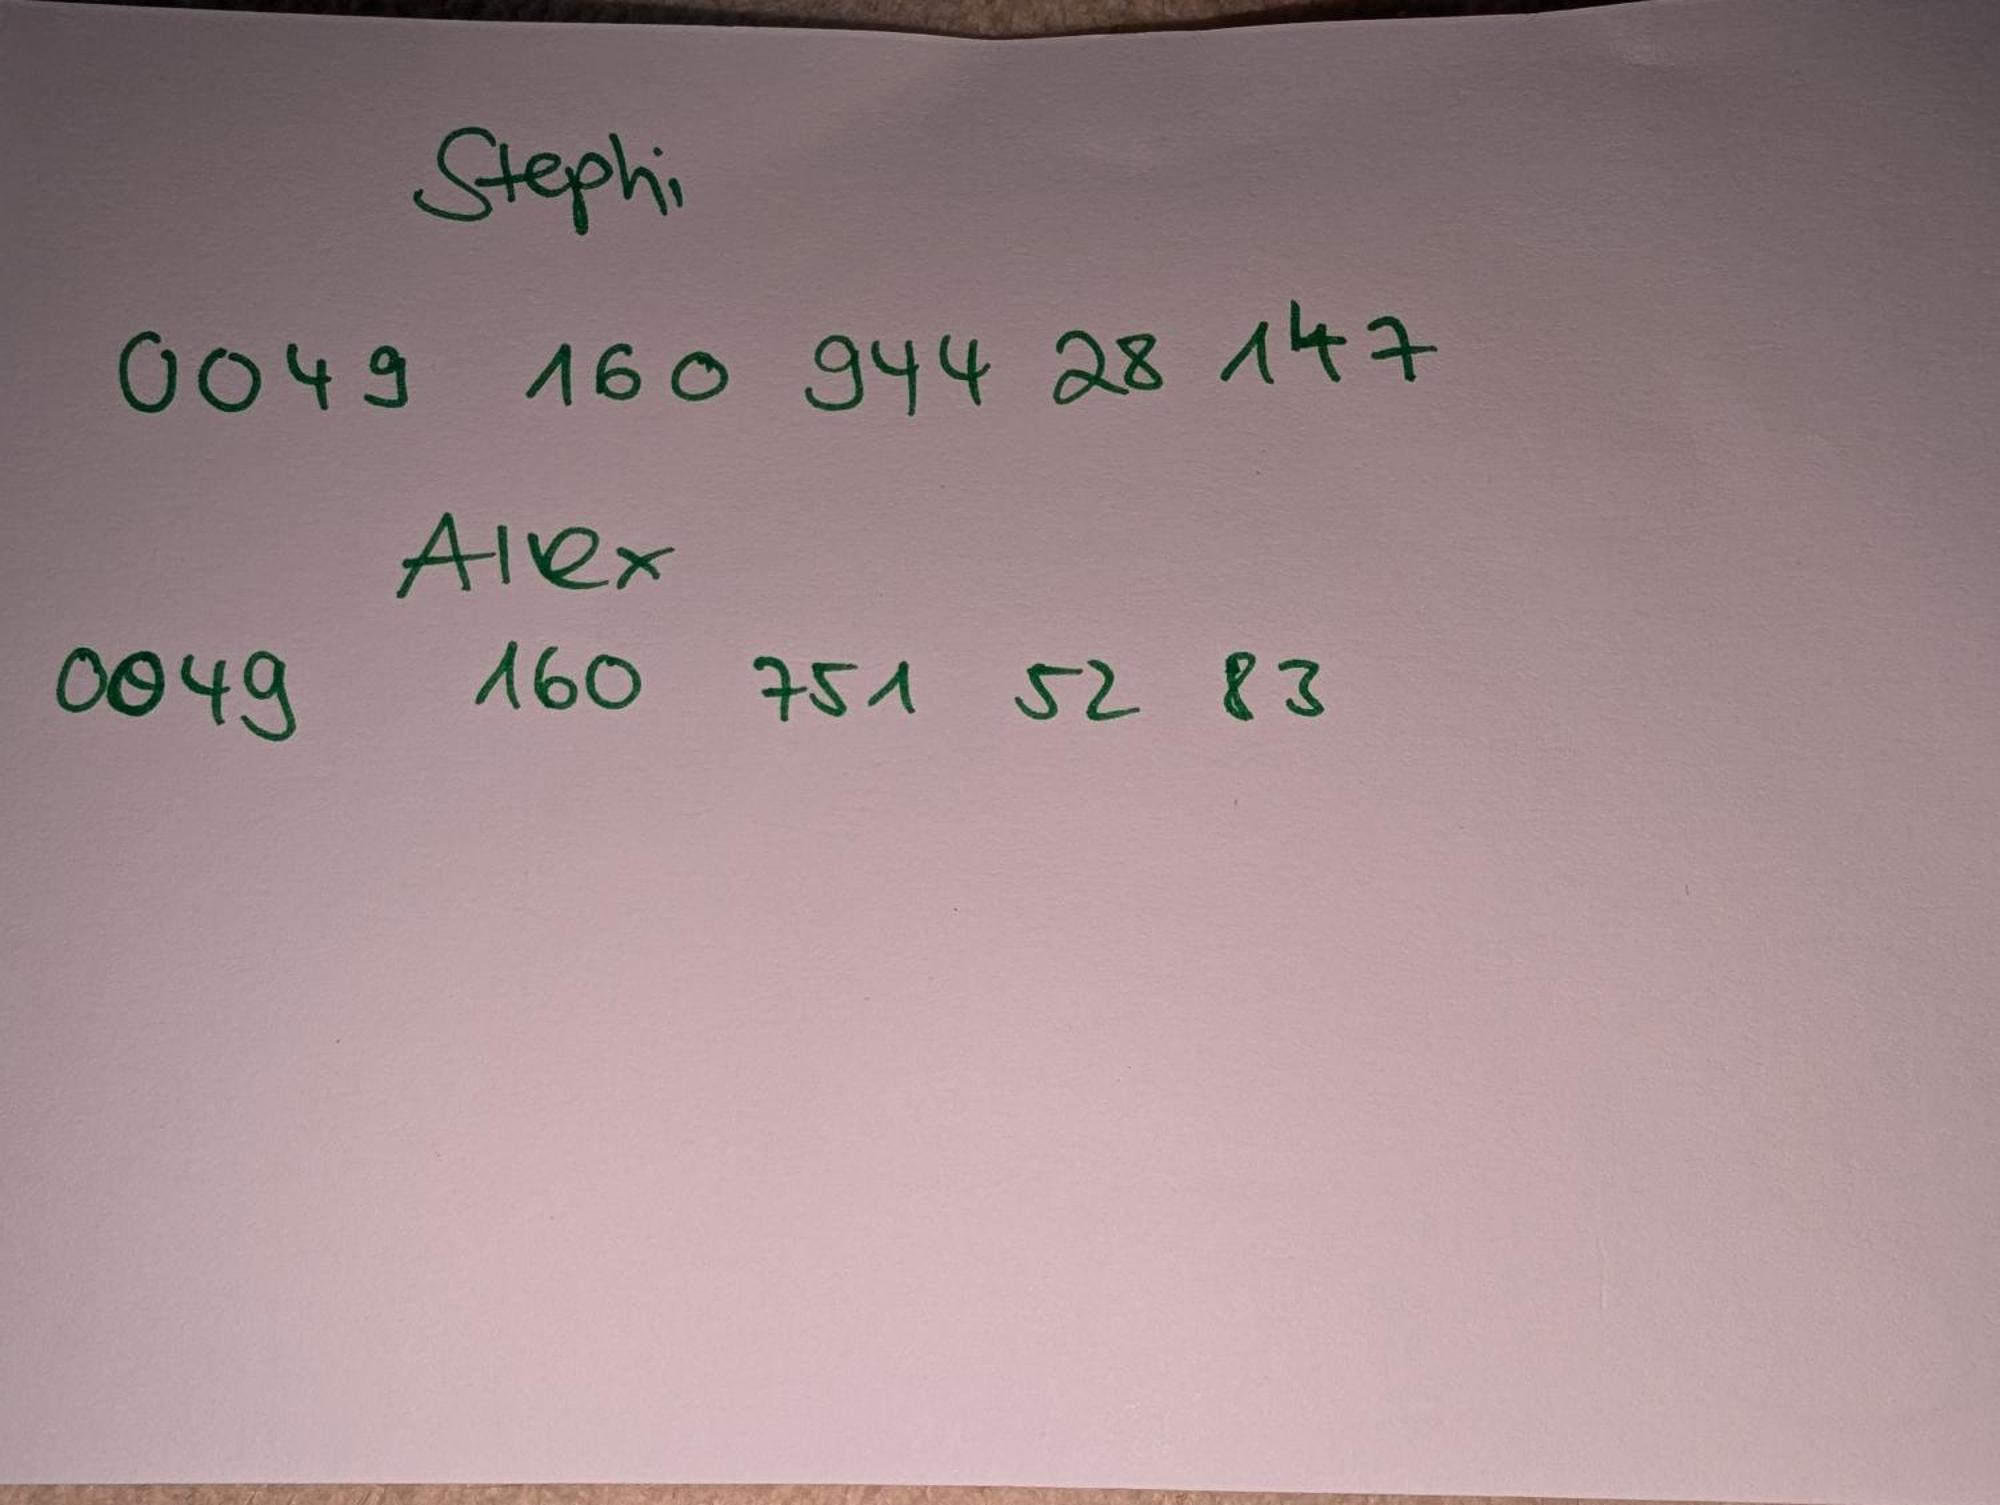 Stephi
0049 160 944 28 147
Alex
0049 160 751 52 83